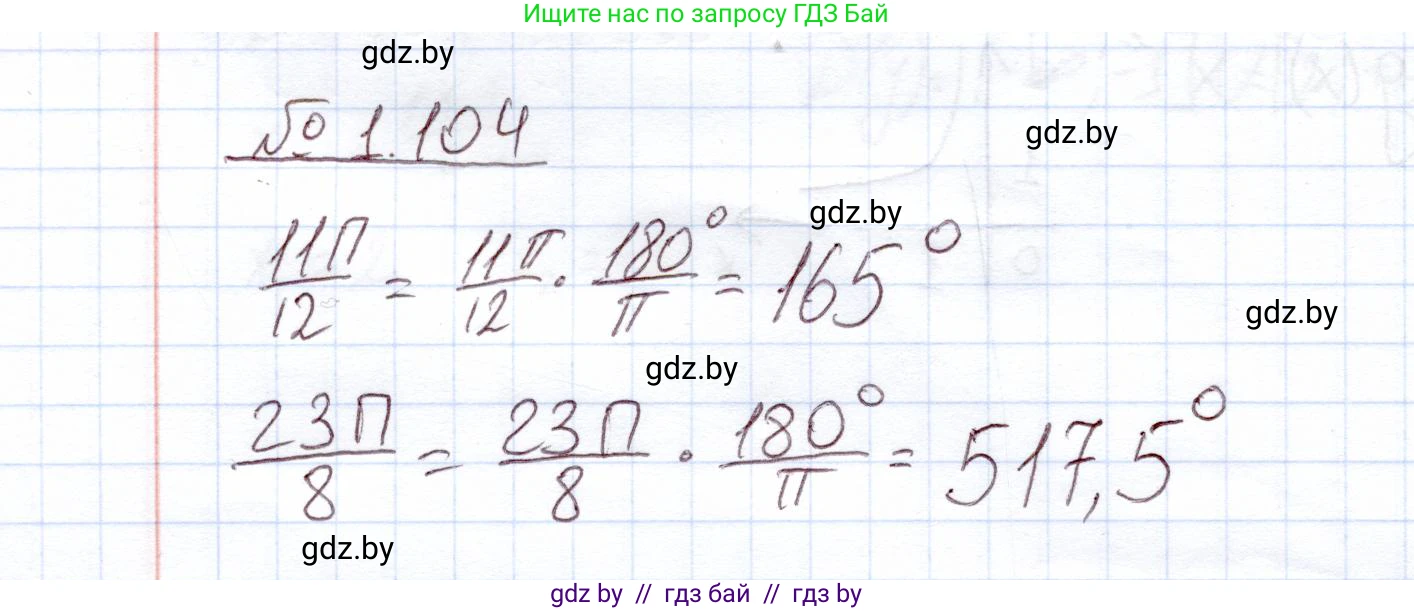 Ищите нас по запросу ГДЗ Бай
gdz.by
№ 1.104
gdz.by
gdz.by
11П/12 = 11π/12 · 180°/π = 165°
gdz.by
gdz.by
23П/8 = 23П/8 · 180°/π = 517,5°
gdz.by
gdz by // гдз бай // гдз by